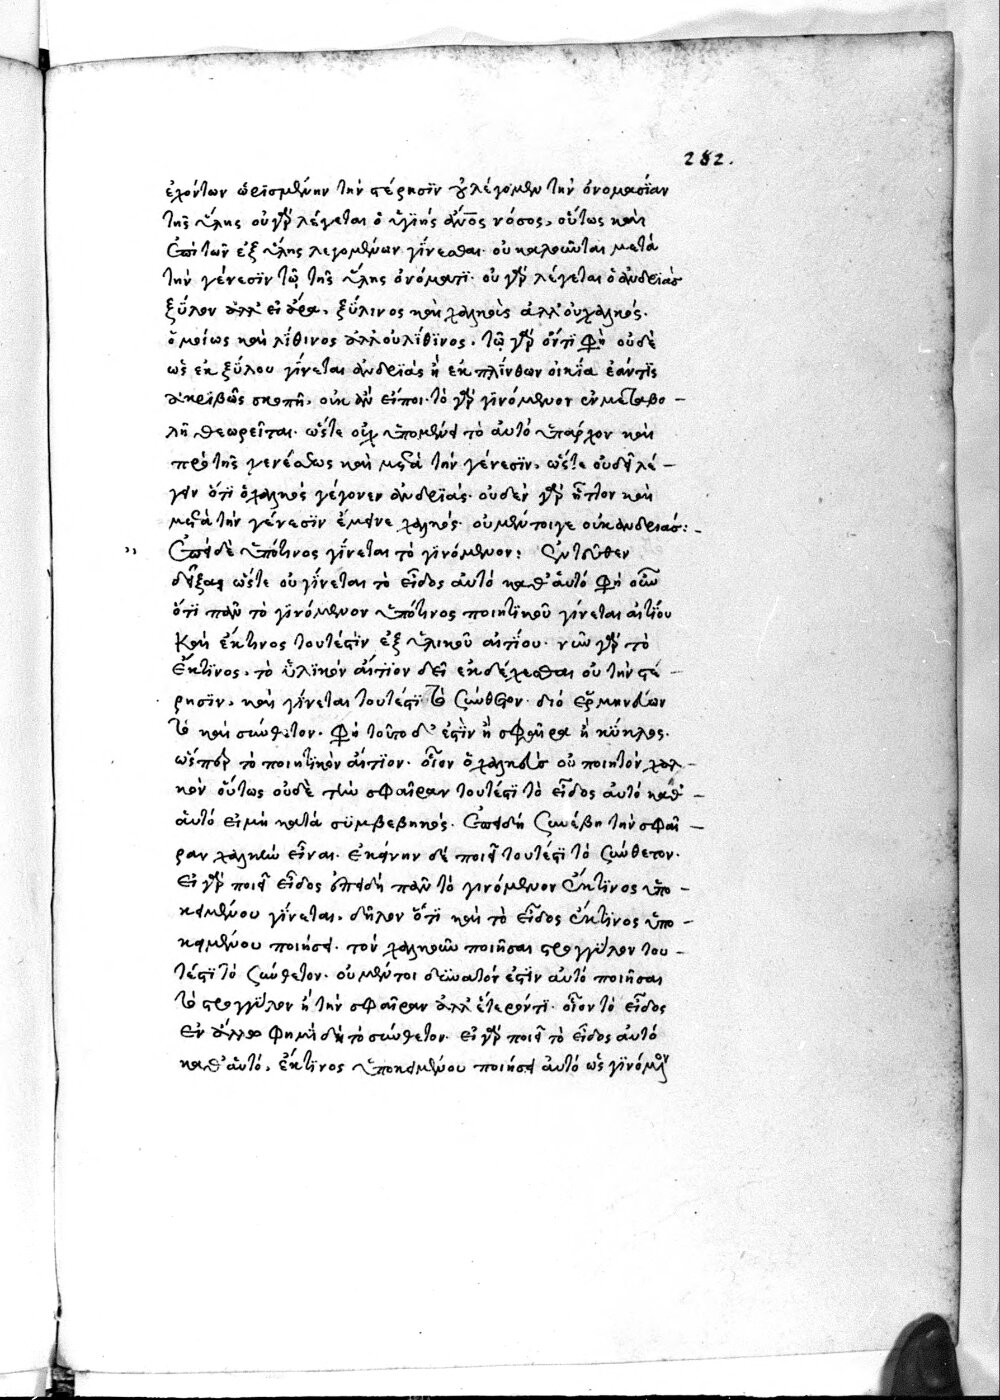 282.
ἐχόντων ὡρισμένην τὴν στέρησϊν οὐ λέγομεν τὴν ὀνομασίαν
τῆς ὕλης οὐ γὰρ λέγεται ὁ ὑγιὴς ἄνος νόσος, οὕτως καὶ
ἐπὶ τῶν ἐξ ὕλης λεγομένων γΐνεσθαι. οὐ καλοῦνται μετὰ
τὴν γένεσϊν τῷ τῆς ὕλης ὀνόματι. οὐ γὰρ λέγεται ὁ ἀνδριὰς
ξύλον ἀλλ' εἰ ἄρα, ξύλινος καὶ χαλκοῦς ἀλλ' οὐ χαλκός.
ὁμοίως καὶ λίθινος ἀλλ' οὐ λίθϊνος. τῷ γὰρ ὄντι φη οὐδὲ
ὡς ἐκ ξύλου γΐνεται ἀνδριὰς ἢ ἐκ πλίνθων οἰκία ἐάν τις
ἀκριβῶς σκοπῇ, οὐκ ἂν εἴποι. τὸ γὰρ γϊνόμενον ἐν μεταβο-
λῇ θεωρεῖται. ὥστε οὐχ ὑπομένει τὸ αὐτὸ ὑπάρχον καὶ
πρὸ τῆς γενέσεως καὶ μετὰ τὴν γένεσϊν, ὥστε οὐδὲ λέ-
γειν ὅτι ὁ χαλκὸς γέγονεν ἀνδριάς. οὐδὲν γὰρ ἧττον καὶ
μετὰ τὴν γένεσϊν ἔμεινε χαλκός. οὐ μέντοιγε οὐκ ἀνδριάς:-
Ἐπεὶ δὲ ὑπό τινος γΐνεται τὸ γϊνόμενον: Ἐντεῦθεν
δείξας ὥστε οὐ γίνεται τὸ εἶδος αὐτὸ καθ' αὑτό φη οὖν
ὅτι πᾶν τὸ γϊνόμενον ὑπό τινος ποιητϊκοῦ γίνεται αἰτίου
καὶ ἔκ τινος τουτέστϊν ἐξ ὑλικοῦ αἰτίου. νῦν γὰρ τὸ
ἔκ τϊνος, τὸ ὑλϊκὸν αἴτϊον δεῖ ἐκδέχεσθαι οὐ τὴν στέ-
ρησϊν, καὶ γΐνεται τουτέστϊ τὸ σύνθετον. διὸ ἑρμηνεύων
τὸ καὶ σύνθετον. φη τοῦτο δ' ἐστϊν ἢ σφαῖρα ἢ κύκλος.
ὥσπερ τὸ ποιητϊκὸν αἴτιον. οἷον ὁ χαλκεὺς οὐ ποιεῖ τὸν χαλ-
κὸν οὕτως οὐδὲ τὴν σφαῖραν τουτέστϊ τὸ εἶδος αὐτὸ καθ'-
αὑτὸ εἰ μὴ κατὰ συμβεβηκός. ἐπειδὴ συνέβη τὴν σφαῖ-
ραν χαλκῆν εἶναι. ἐκείνην δὲ ποιεῖ τουτέστϊ τὸ σύνθετον.
εἰ γὰρ ποιεῖ εἶδος ἐπειδὴ πᾶν τὸ γινόμενον ἔκ τϊνος ὑπο-
κειμένου γΐνεται, δῆλον ὅτι καὶ τὸ εἶδος ἔκ τϊνος ὑπο-
κειμένου ποιήσει. τὸν χαλκοῦν ποιῆσαι στρογγύλον του-
τέστϊ τὸ σύνθετον. οὐ μέντοι δυνατόν ἐστϊν αὐτὸ ποιῆσαι
τὸ στρογγύλον ἢ τὴν σφαῖραν ἀλλ' ἕτερόν τϊ. οἷον τὸ εἶδος
ἐν ἄλλῳ φημὶ δὴ τὸ σύνθετον. εἰ γὰρ ποιεῖ τὸ εἶδος αὐτὸ
καθ' αὑτό, ἔκ τϊνος ὑποκειμένου ποιήσει αὐτὸ ὡς γϊνόμενον